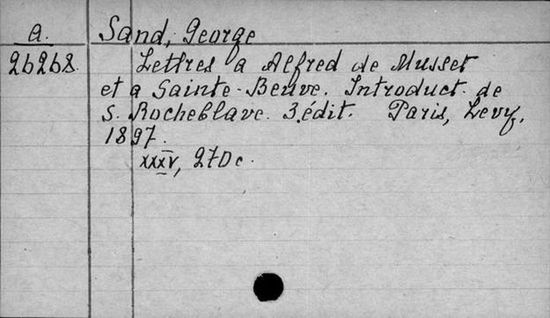 a.
26268.
Sand, George
Lettres a Alfred de Musset
et a Sainte-Beuve. Introduct. de
S. Rocheblave. 3.édit. Paris, Levy,
1897.
XXXV, 270 c.